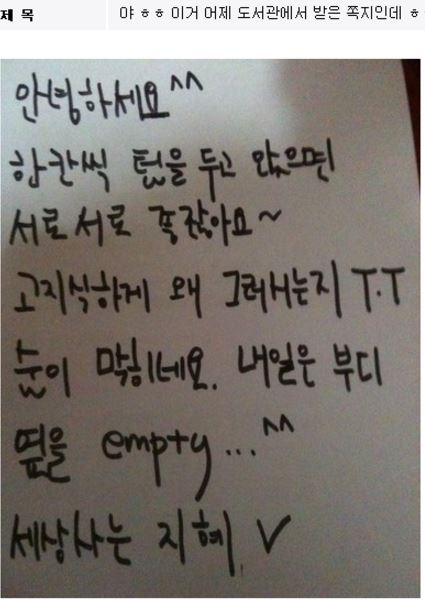 제 목 야 ㅎㅎ 이거 어제 도서관에서 받은 쪽지인데 ㅎ
안녕하세요^^
한칸씩 텀을 두고 앉으면
서로서로 좋잖아요~
고지식하게 왜 그러시는지 T.T
숨이 막히네요. 내일은 부디
옆을 empty...^^
세상사는 지혜, V